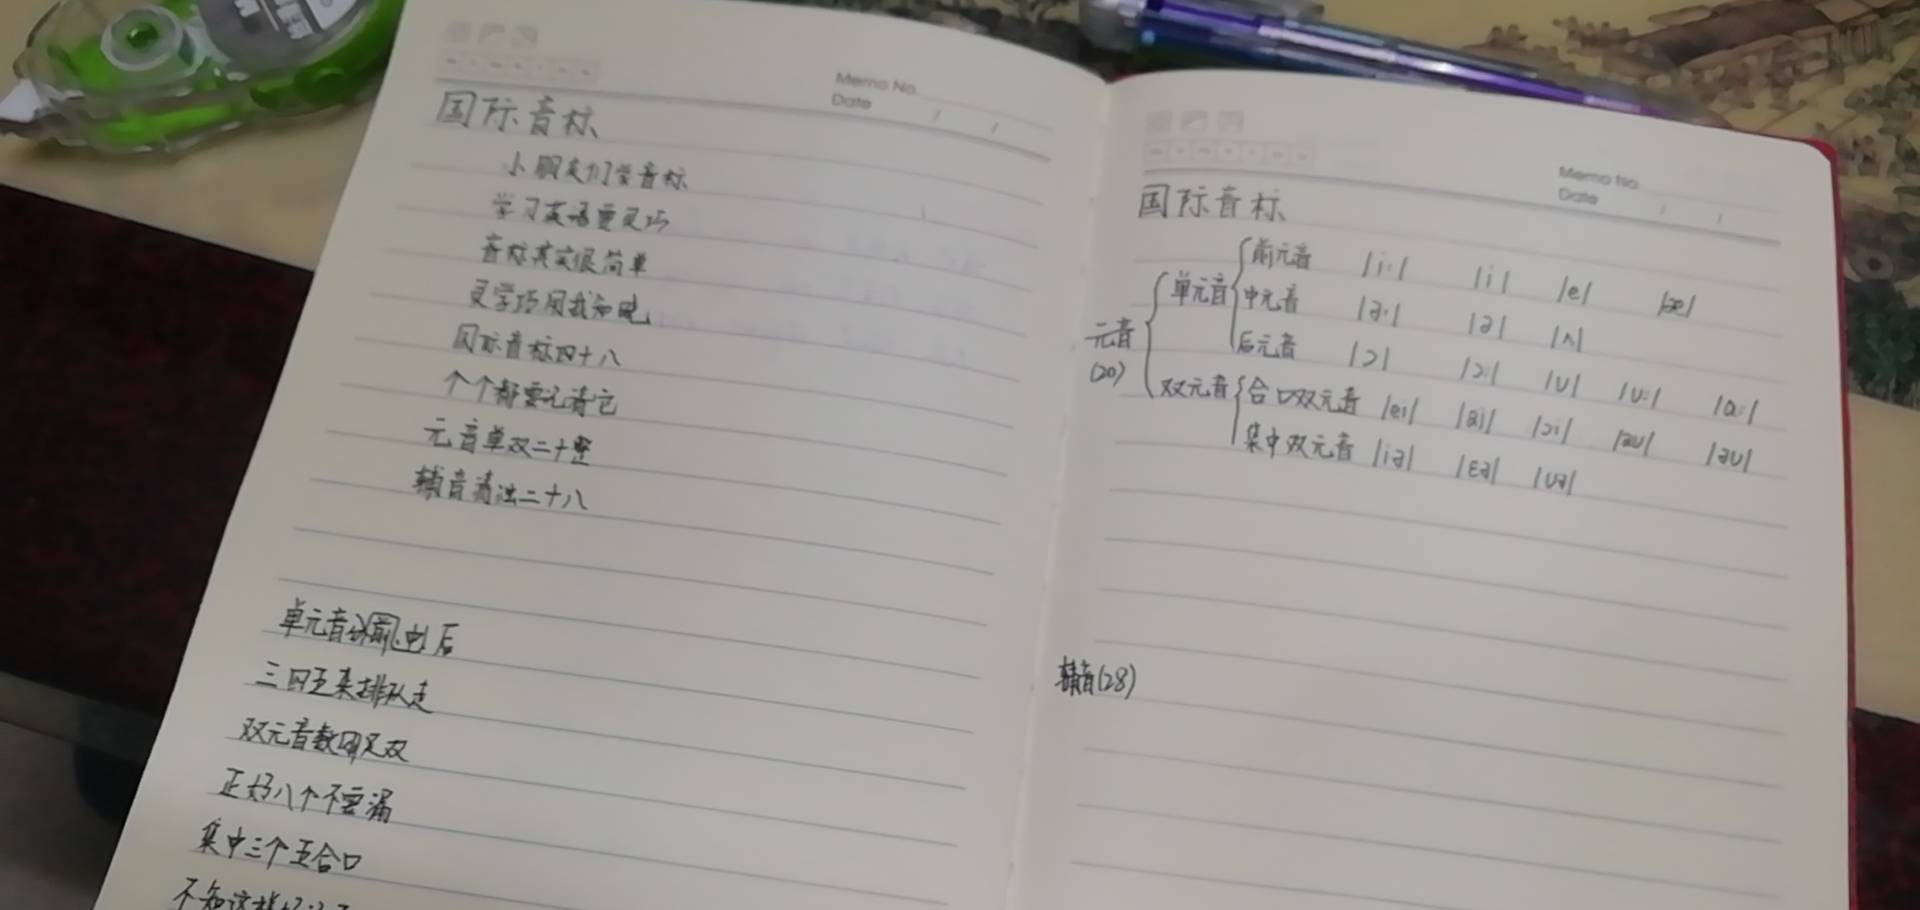 Memo No.
Date / /
国际音标
小朋友们学音标
学习英语更灵巧
音标其实很简单
灵学巧用我知晓
国际音标四十八
个个都要记清它
元音单双二十整
辅音清浊二十八
单元音分前中后
三四五来排队走
双元音数
正好八个不要漏
集中三个五合口
不知这样
Memo No.
Date / /
国际音标
前元音 /i:/ /i/ /e/ /æ/
单元音 中元音 /ə:/ /ə/ /ʌ/
元音 后元音 /ɔ/ /ɔ:/ /u/ /u:/ /ɑ:/
(20) 双元音 合口双元音 /ei/ /ai/ /ɔi/ /au/ /əu/
集中双元音 /iə/ /εə/ /uə/
辅音(28)